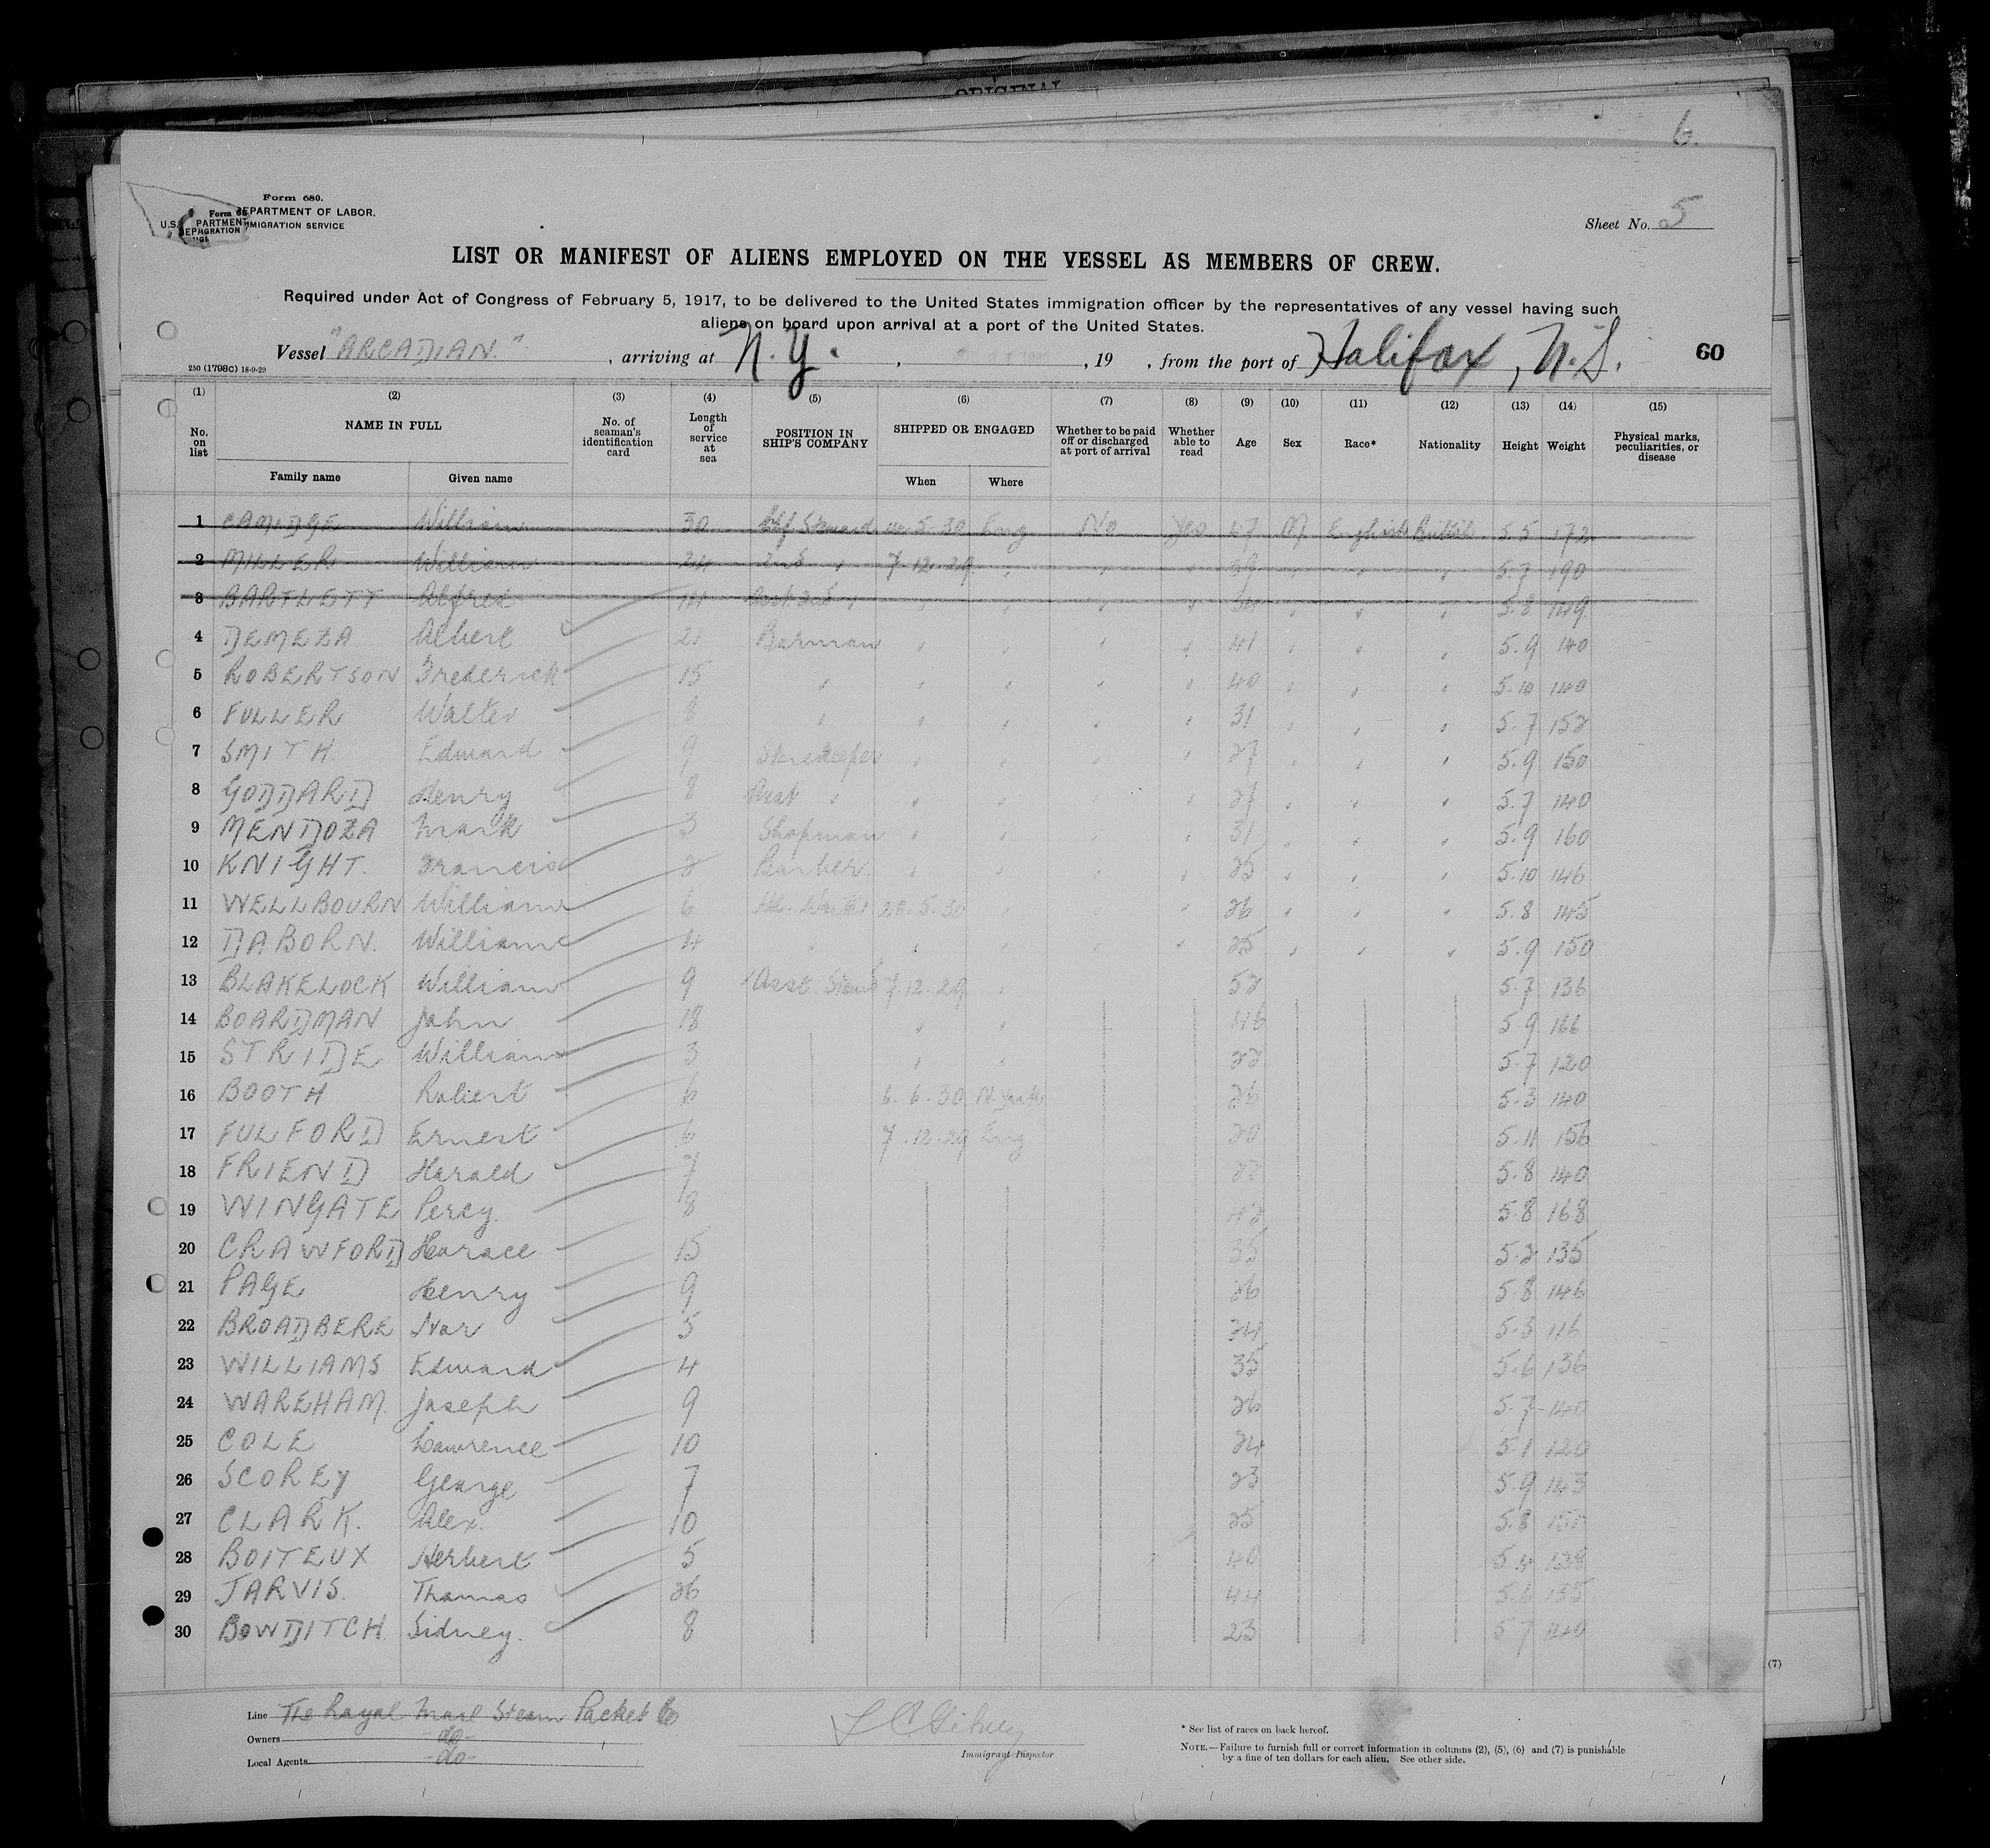 ORIGINAL
6.
Form 680.
U.S. DEPARTMENT OF LABOR.
IMMIGRATION SERVICE
Form 68
PARTMENT
Sheet No. 5
LIST OR MANIFEST OF ALIENS EMPLOYED ON THE VESSEL AS MEMBERS OF CREW.
Required under Act of Congress of February 5, 1917, to be delivered to the United States immigration officer by the representatives of any vessel having such
aliens on board upon arrival at a port of the United States.
Vessel "ARCADIAN.", arriving at N.Y., , 19 , from the port of Halifax, N.S. 60
250 (1798c) 18-9-29
(1) (2) (3) (4) (5) (6) (7) (8) (9) (10) (11) (12) (13) (14) (15)
No. on list NAME IN FULL No. of seaman's identification card Length of service at sea POSITION IN SHIP'S COMPANY SHIPPED OR ENGAGED Whether to be paid off or discharged at port of arrival Whether able to read Age Sex Race* Nationality Height Weight Physical marks, peculiarities, or disease
Family name Given name When Where
1 CAMIDGE William 30 Chf Steward 14.5.30 Eng No Yes 47 M English British 5.5 172
2 MILLER William 24 2nd " 7.12.29 " " " 39 " " " 5.7 190
3 BARTLETT Alfred 14 Asst 2nd " " " " " 34 " " " 5.8 149
4 DEMEZA Albert 21 Barman " " " " 41 " " " 5.9 140
5 ROBERTSON Frederick 15 " " " " " 40 " " " 5.10 140
6 FULLER Walter 8 " " " " " 31 " " " 5.7 152
7 SMITH. Edward 9 Storekeeper " " " " 27 " " " 5.9 150
8 GODDARD Henry 8 Asst " " " " " 27 " " " 5.7 140
9 MENDOZA Mark 3 Shopman " " " " 31 " " " 5.9 160
10 KNIGHT. Francis 2 Barber. " " " " 25 " " " 5.10 146
11 WELLBOURN William 6 28.5.30 " " " 26 " " " 5.8 145
12 DABORN. William 4 " " " " " 25 " " " 5.9 150
13 BLAKELOCK William 9 Asst Stewd 7.12.29 " 52 5.7 136
14 BOARDMAN John 18 " " 46 5.9 166
15 STRIDE William 3 " " 22 5.7 120
16 BOOTH Robert 6 6.6.30 N. York 26 5.3 140
17 FULFORD Ernest 6 7.12.29 Eng 20 5.11 156
18 FRIEND Harold 7 22 5.8 140
19 WINGATE Percy. 18 42 5.8 168
20 CRAWFORD Horace 15 35 5.2 135
21 PAGE Henry 9 26 5.8 146
22 BROADBERE Ivor 5 24 5.3 116
23 WILLIAMS Edward 4 35 5.6 136
24 WAREHAM. Joseph 9 26 5.7 140
25 COLE Lawrence 10 24 5.1 120
26 SCOREY George 7 23 5.9 143
27 CLARK. Alex. 10 25 5.8
28 BOITEUX Herbert 5 40
29 JARVIS. Thomas 26 44 5.6 155
30 BOWDITCH. Sidney. 8 23 5.7 140
(7)
Line The Royal Mail Steam Packet Co
Owners -do-
Local Agents -do-
Immigrant Inspector
* See list of races on back hereof.
NOTE.—Failure to furnish full or correct information in columns (2), (5), (6) and (7) is punishable
by a fine of ten dollars for each alien. See other side.